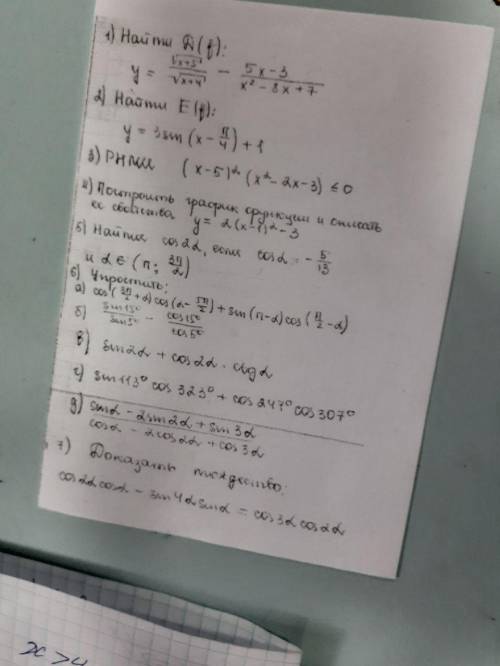 1) Найти D(f):
y = √(x+3)/√(x+4) − (5x−3)/(x²−8x+7)
2) Найти E(f):
y = 3sin(x−π/4)+1
3) РНМИ (x−5)²(x²−2x−3) ≤ 0
4) Построить график функции и описать
ее свойства y = 2(x−1)²−3
5) Найти cos2α, если cosα = −5/13
и α ∈ (π; 3π/2)
6) Упростить:
а) cos(3π/2+α)cos(α−5π/2)+sin(π−α)cos(π/2−α)
б) sin15°/sin5° − cos15°/cos5°
в) sin2α + cos2α · ctgα
г) sin113° cos323° + cos247° cos307°
д) (sinα − 2sin2α + sin3α)/(cosα − 2cos2α + cos3α)
7) Доказать тождество:
cos2α cosα − sin4α sinα = cos3α cos2α
x > 4